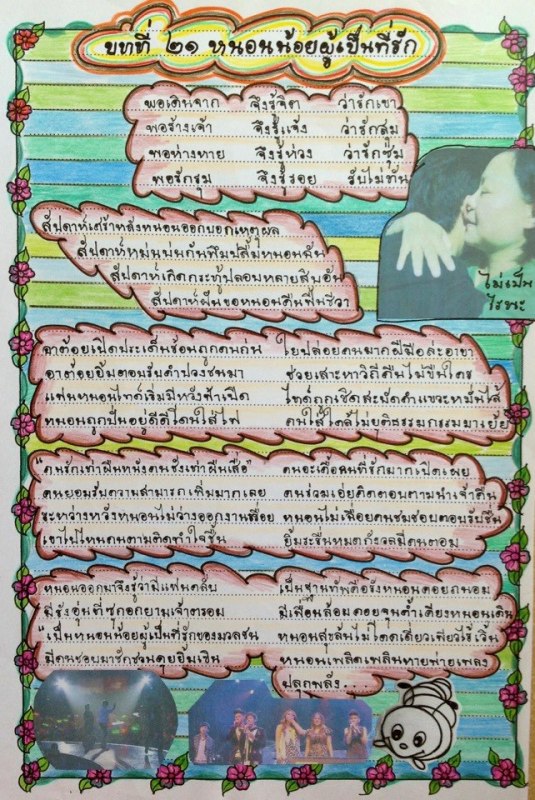 บทที่ ๒๑ หนอนน้อยผู้เป็นที่รัก
พอเดินจาก จึงรู้จิต ว่ารักเขา
พอร้างเจ้า จึงรู้แจ้ง ว่ารักสุม
พอห่างหาย จึงรู้ห่วง ว่ารักซุ่ม
พอรักรุม จึงรู้รอย รับไม่ทัน
สัปดาห์เศร้าหลังหนอนออกบอกเหตุผล
สัปดาห์หม่นหม่นกันทีมปลื้มหนอนฉัน
สัปดาห์เกิดกระทู้ปลอมหลายสิบอัน
สัปดาห์ฝันขอหนอนคืนฟื้นชีวา
ไม่เป็น
ไรนะ
อาต้อยเปิดประเด็นซ้อนถูกคนก่น ใยปล่อยคนมากฝีมือล่ะอาขา
อาต้อยยิ้มตอมรับคำปวงชนมา ช่วยเสาะหาวิถีคืนไม่ขืนใคร
แฟนหนอนไทด์เริ่มมีหวังฟ้าเปิด ไทด์ถูกเชิดสะบัดคำแขวะหมั่นไส้
หนอนถูกปั่นอยู่ดีดีโดนใส่ไฟ คนใส่ใคล้ไม่ยุติธรรมกรรมมาเยือ
"คนรักเท่าผืนหนังคนชังเท่าผืนเสื่อ" คนอะเคื้อหนที่รักมากเปิดเผย
คนยอมรับความสามารถเพิ่มมากเลย คนร่วมเอ่ยคิดตอบตามนำเจ้าคืน
ระหว่างหวังหนอนไม่ว่างออกงานเรื่อย หนอนไม่เฉื่อยคนชมชอยตอบรับชื่น
เขาไปไหนคนตามติดทำใจชื้น ยิ้มระรื่นหมดกังวลมีคนตอม
หนอนออกมาจึงรู้ว่ามีแฟนคลับ เป็นฐานทัพคือรังหนอนคอยถนอม
มีรังอุ่นที่ซุกอกยามเจ้าตรอม มีเพื่อนล้อมคอยจุนค้ำเคียงหนอนเดิน
"เป็นหนอนน้อยผู้เป็นที่รักของมวลชน หนอนสุขล้นไม่โดดเดี่ยวเพียวไร้เวิ้น
มีคนชอบมาชักชวนคุยยิ้มเขิน หนอนเพลิดเพลินหายพ่ายเพลง
ปลุกพลัง...